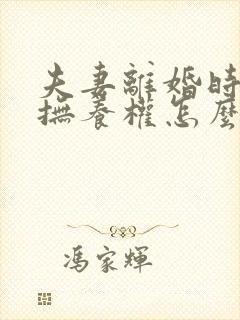 夫妻離婚時
撫養權怎麼
馮家輝